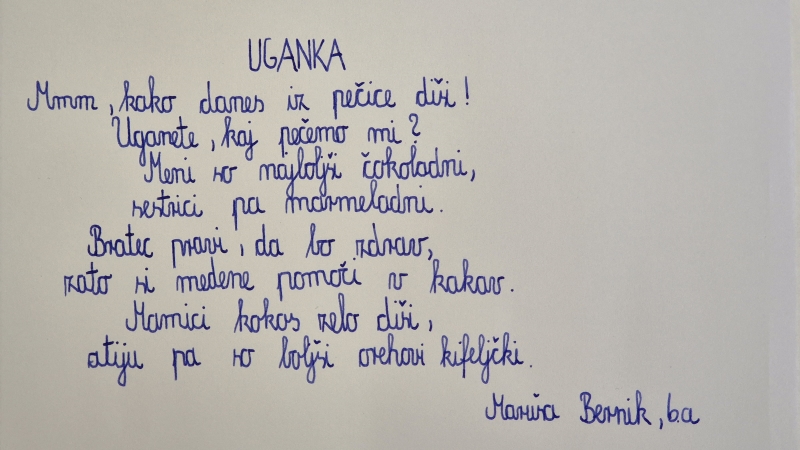 UGANKA
Mmm, kako danes iz pečice diši!
Uganete, kaj pečemo mi?
Meni so najboljši čokoladni,
sestrici pa marmeladni.
Bratec pravi, da bo zdrav,
zato si medene pomoči v kakav.
Mamici kokos zelo diši,
atiju pa so boljši orehovi kifeljčki.
Maruša Bernik, 6.a